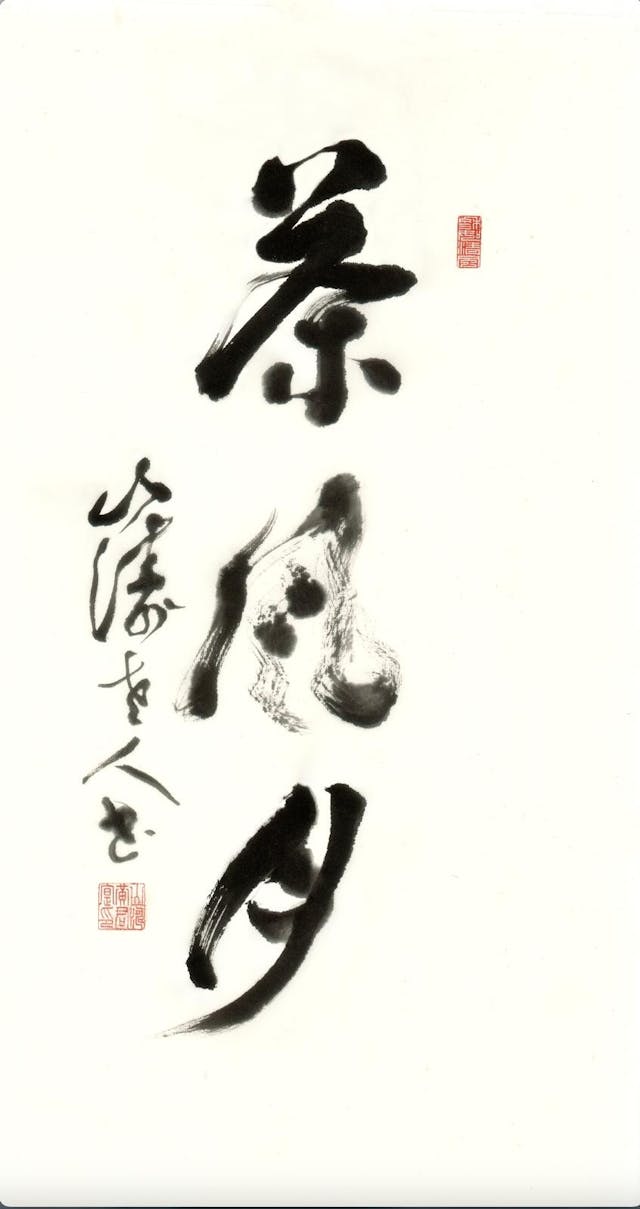 茶風月
山濤老人書